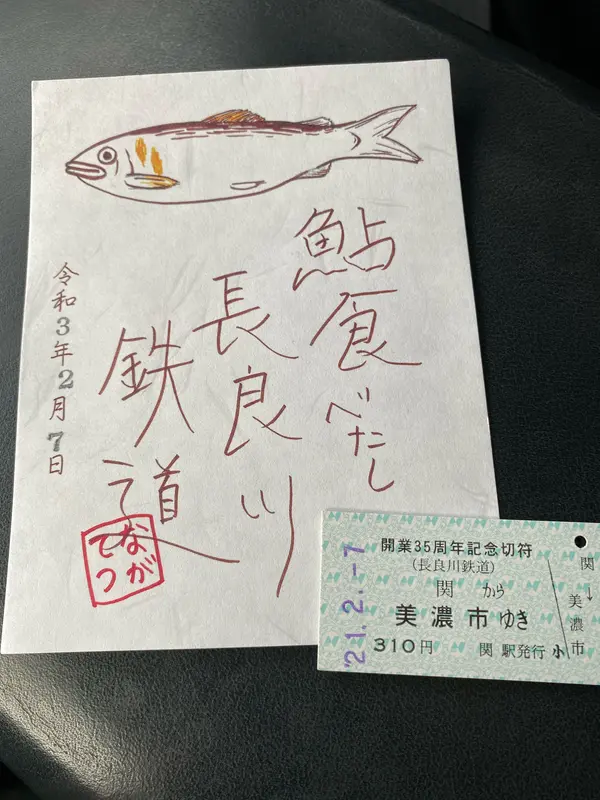 鮎食べたし
長良川
鉄道
令和3年2月7日
ながてつ
開業35周年記念切符
(長良川鉄道)
関から
美濃市ゆき
310円 関駅発行 小
関
↓
美濃市
'21.2.-7